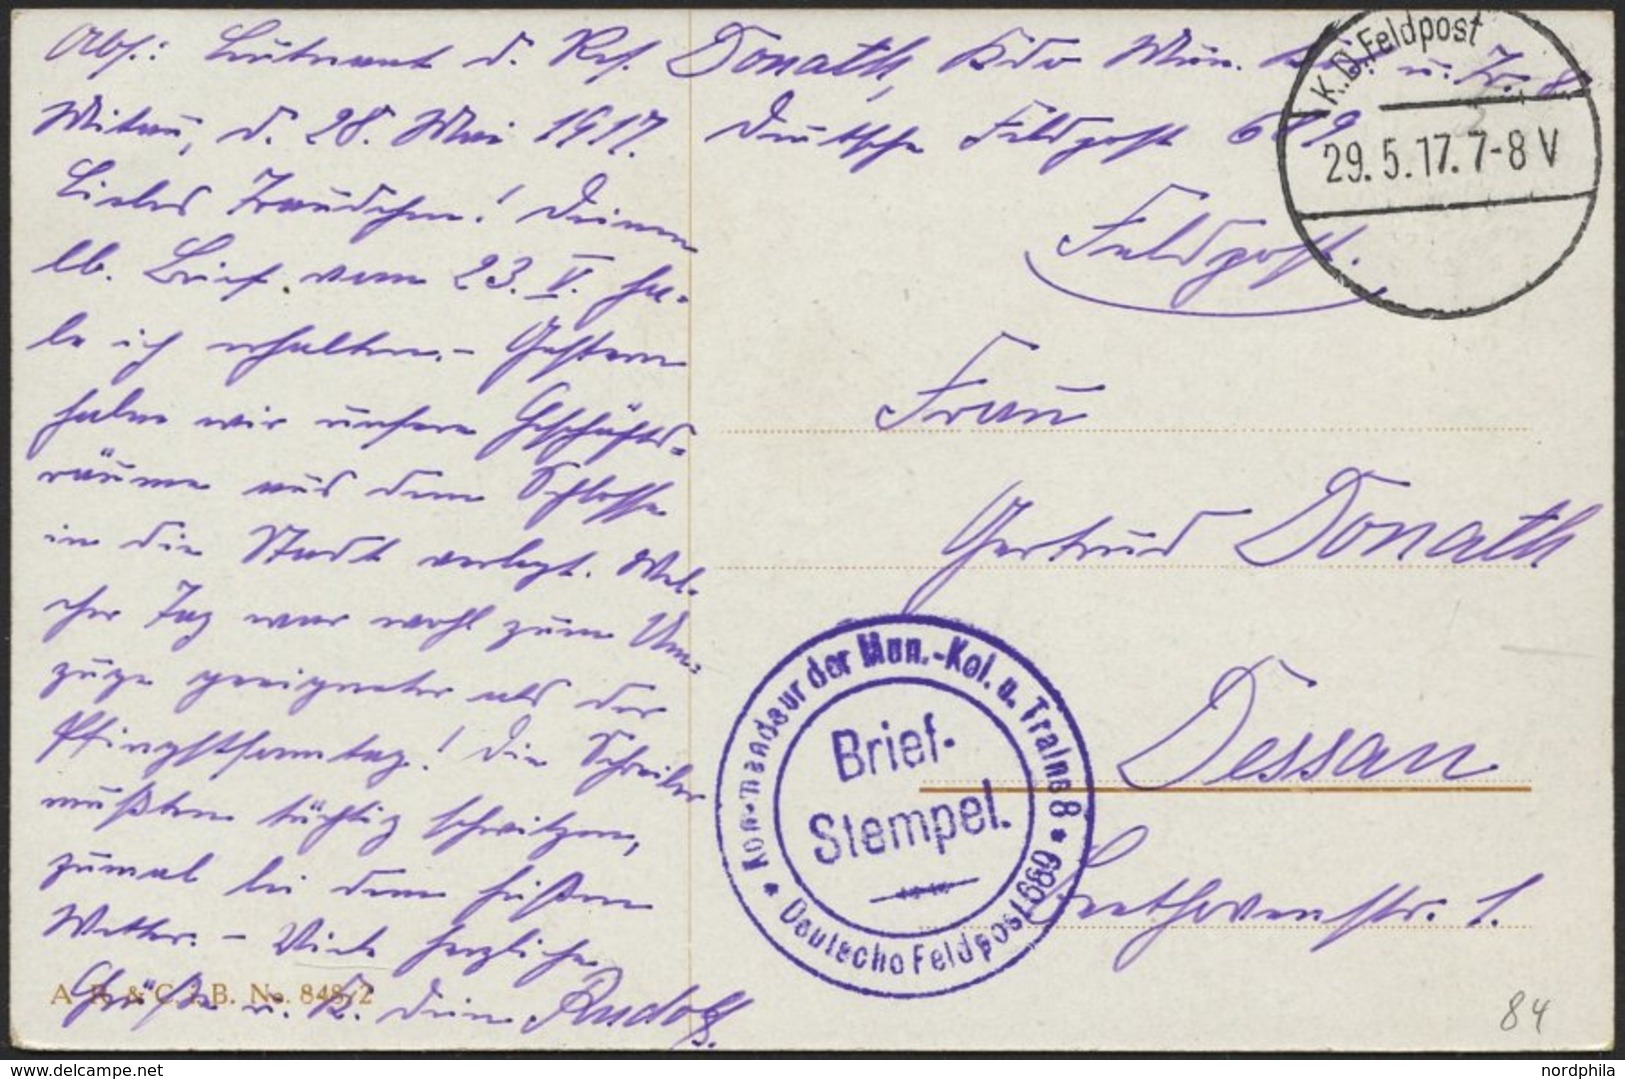 Abs.: Leutnant d. Res. Donath, Kdr Mun. Kol. u. Tr. 8.
Mitau, d. 28. Mai 1917. Deutsche Feldpost 689
Liebes Traudchen! Deinen
lb. Brief vom 23. V. ha-
be ich erhalten. – Gestern
haben wir unsere Geschäfts-
räume aus dem Schlosse
in die Stadt verlegt. Wel-
cher Tag war wohl zum Um-
zuge geeigneter als der
Pfingstsonntag! Die Schreiber
mußten tüchtig schwitzen,
zumal bei dem heißen
Wetter. – Viele herzliche
Grüße u. K. Dein Rudolf.
A. R. & C. i. B. No. 848/2
K.D. Feldpost
29.5.17.7-8V
Feldpost.
Frau
Gertrud Donath
Dessau
Beethovenstr. 1.
Kommandeur der Mun.-Kol. u. Trains 8 * Deutsche Feldpost 689 *
Brief-
Stempel.
84
delcampe.net
nordphila